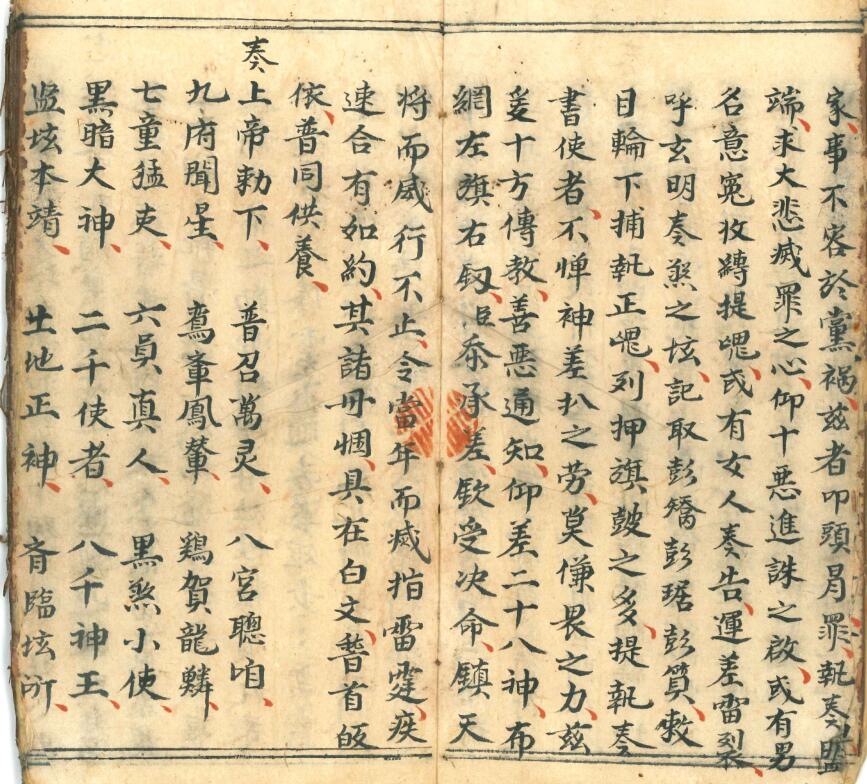 家事不容於黨禍茲者叩頭罪執奏
端求大悲滅罪之心仰十惡進誅之啟或有男
名意冤收縛提魂或有女人奏告運差雷
呼玄明奏煞之坛記取彭矯彭琚彭質敕
日輪下捕執正魂列押旗皷之多提執奏
書使者不惮神差扒之劳莫傔畏之力茲
爰十方傳教善惡通知仰差二十八神布
網左旗右釼臣忝承差欽受决命鎮天
将而威行不止令當年而滅指雷霆疾
速合有如約其諸毌惆具在白文誓首皈
依普同供養
奏上帝勅下 普召萬灵 八宮聰咱
九府聞星 鸞軰鳳輦 鷄賀龍鱗
七童猛吏 六員真人 黒煞小使
黒暗大神 二千使者 八千神王
监坛本靖 土地正神 斉臨坛所